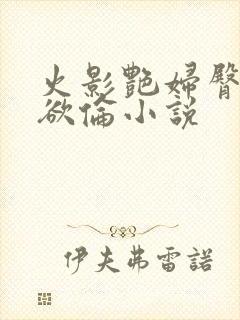 火影艷婦臀
欲倫小說
伊夫弗雷諾